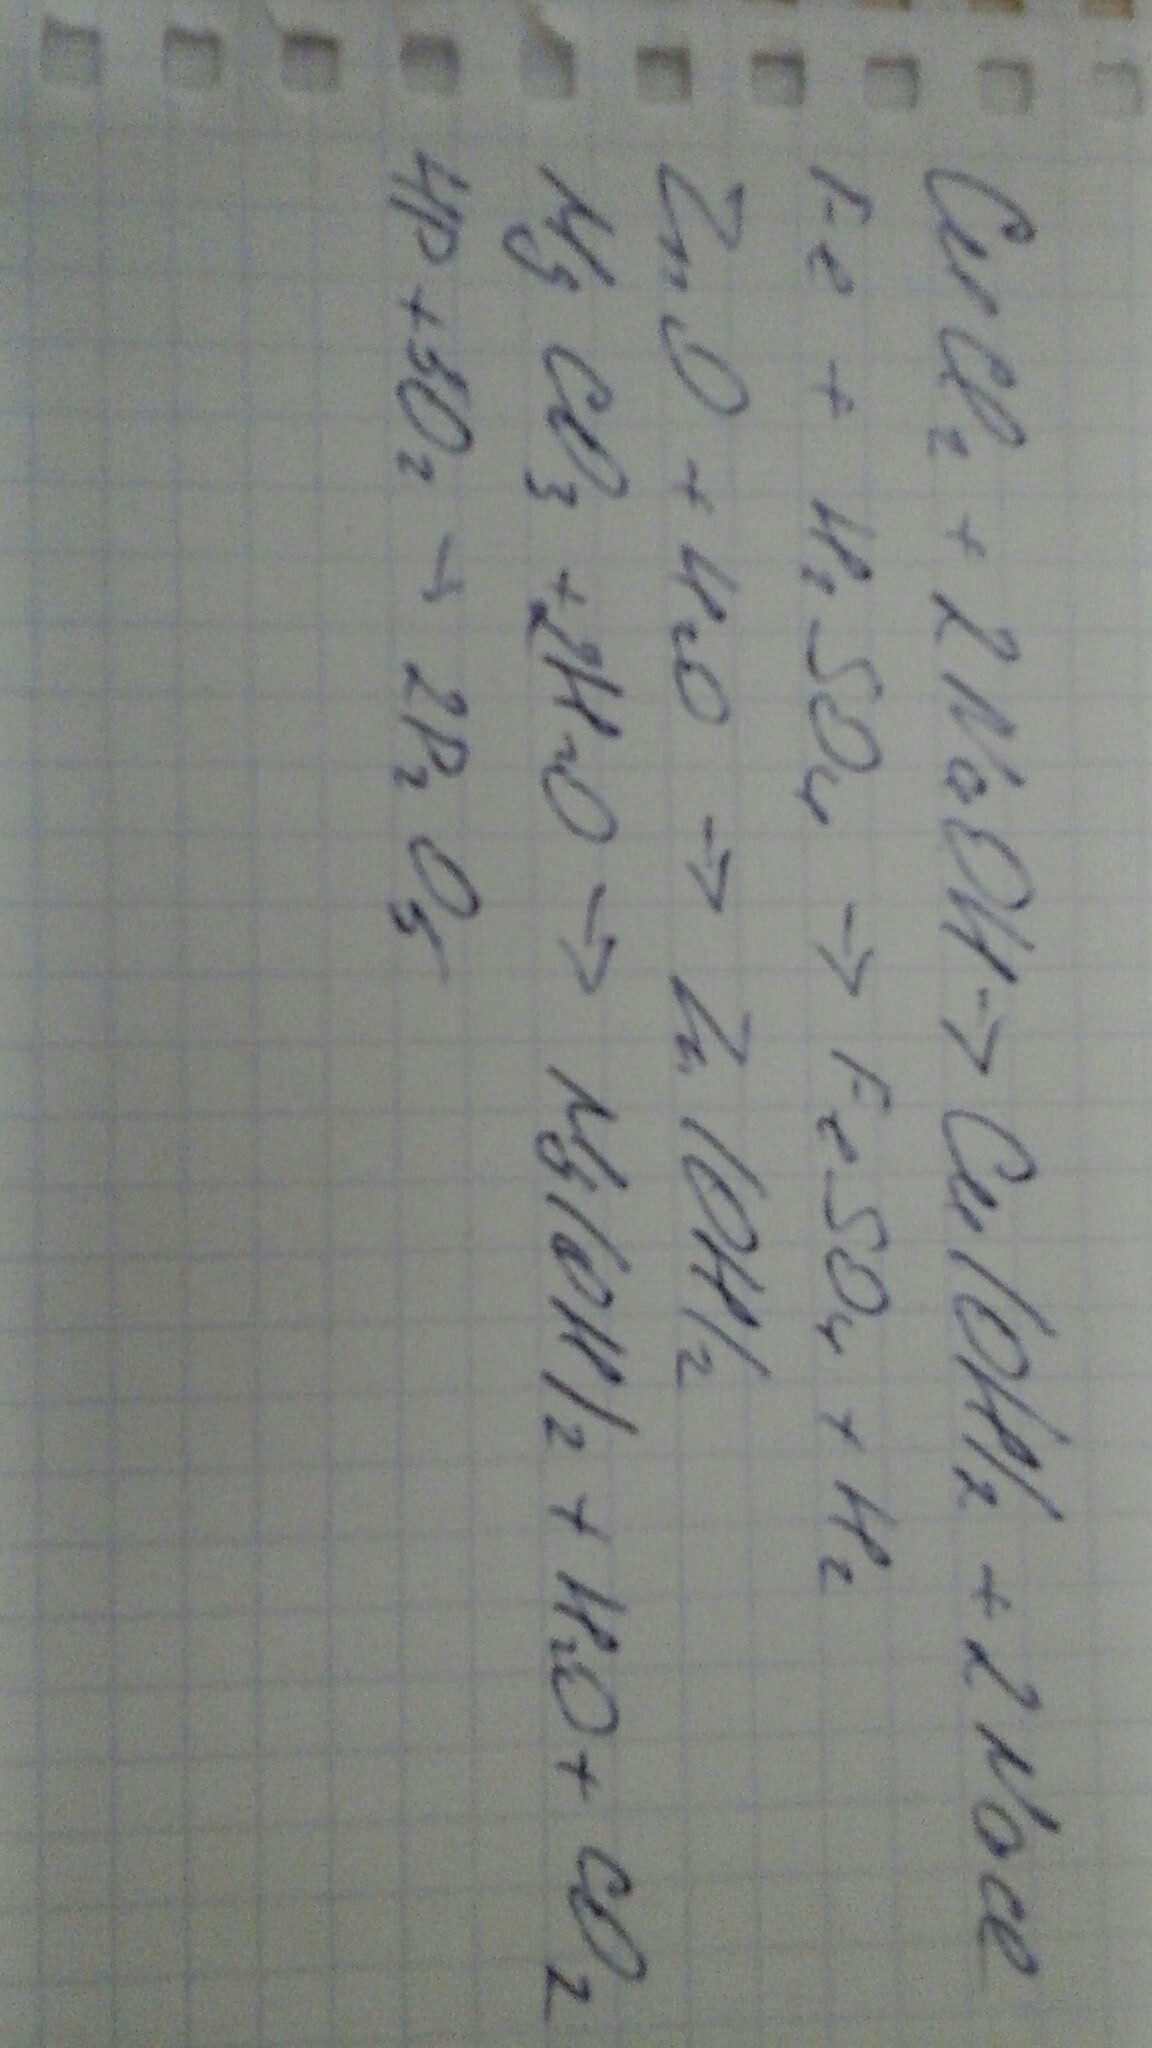 CuCl₂ + 2NaOH → Cu(OH)₂ + 2NaCl
Fe + H₂SO₄ → FeSO₄ + H₂
ZnO + H₂O → Zn(OH)₂
MgCO₃ + 2H₂O → Mg(OH)₂ + H₂O + CO₂
4P + 5O₂ → 2P₂O₅